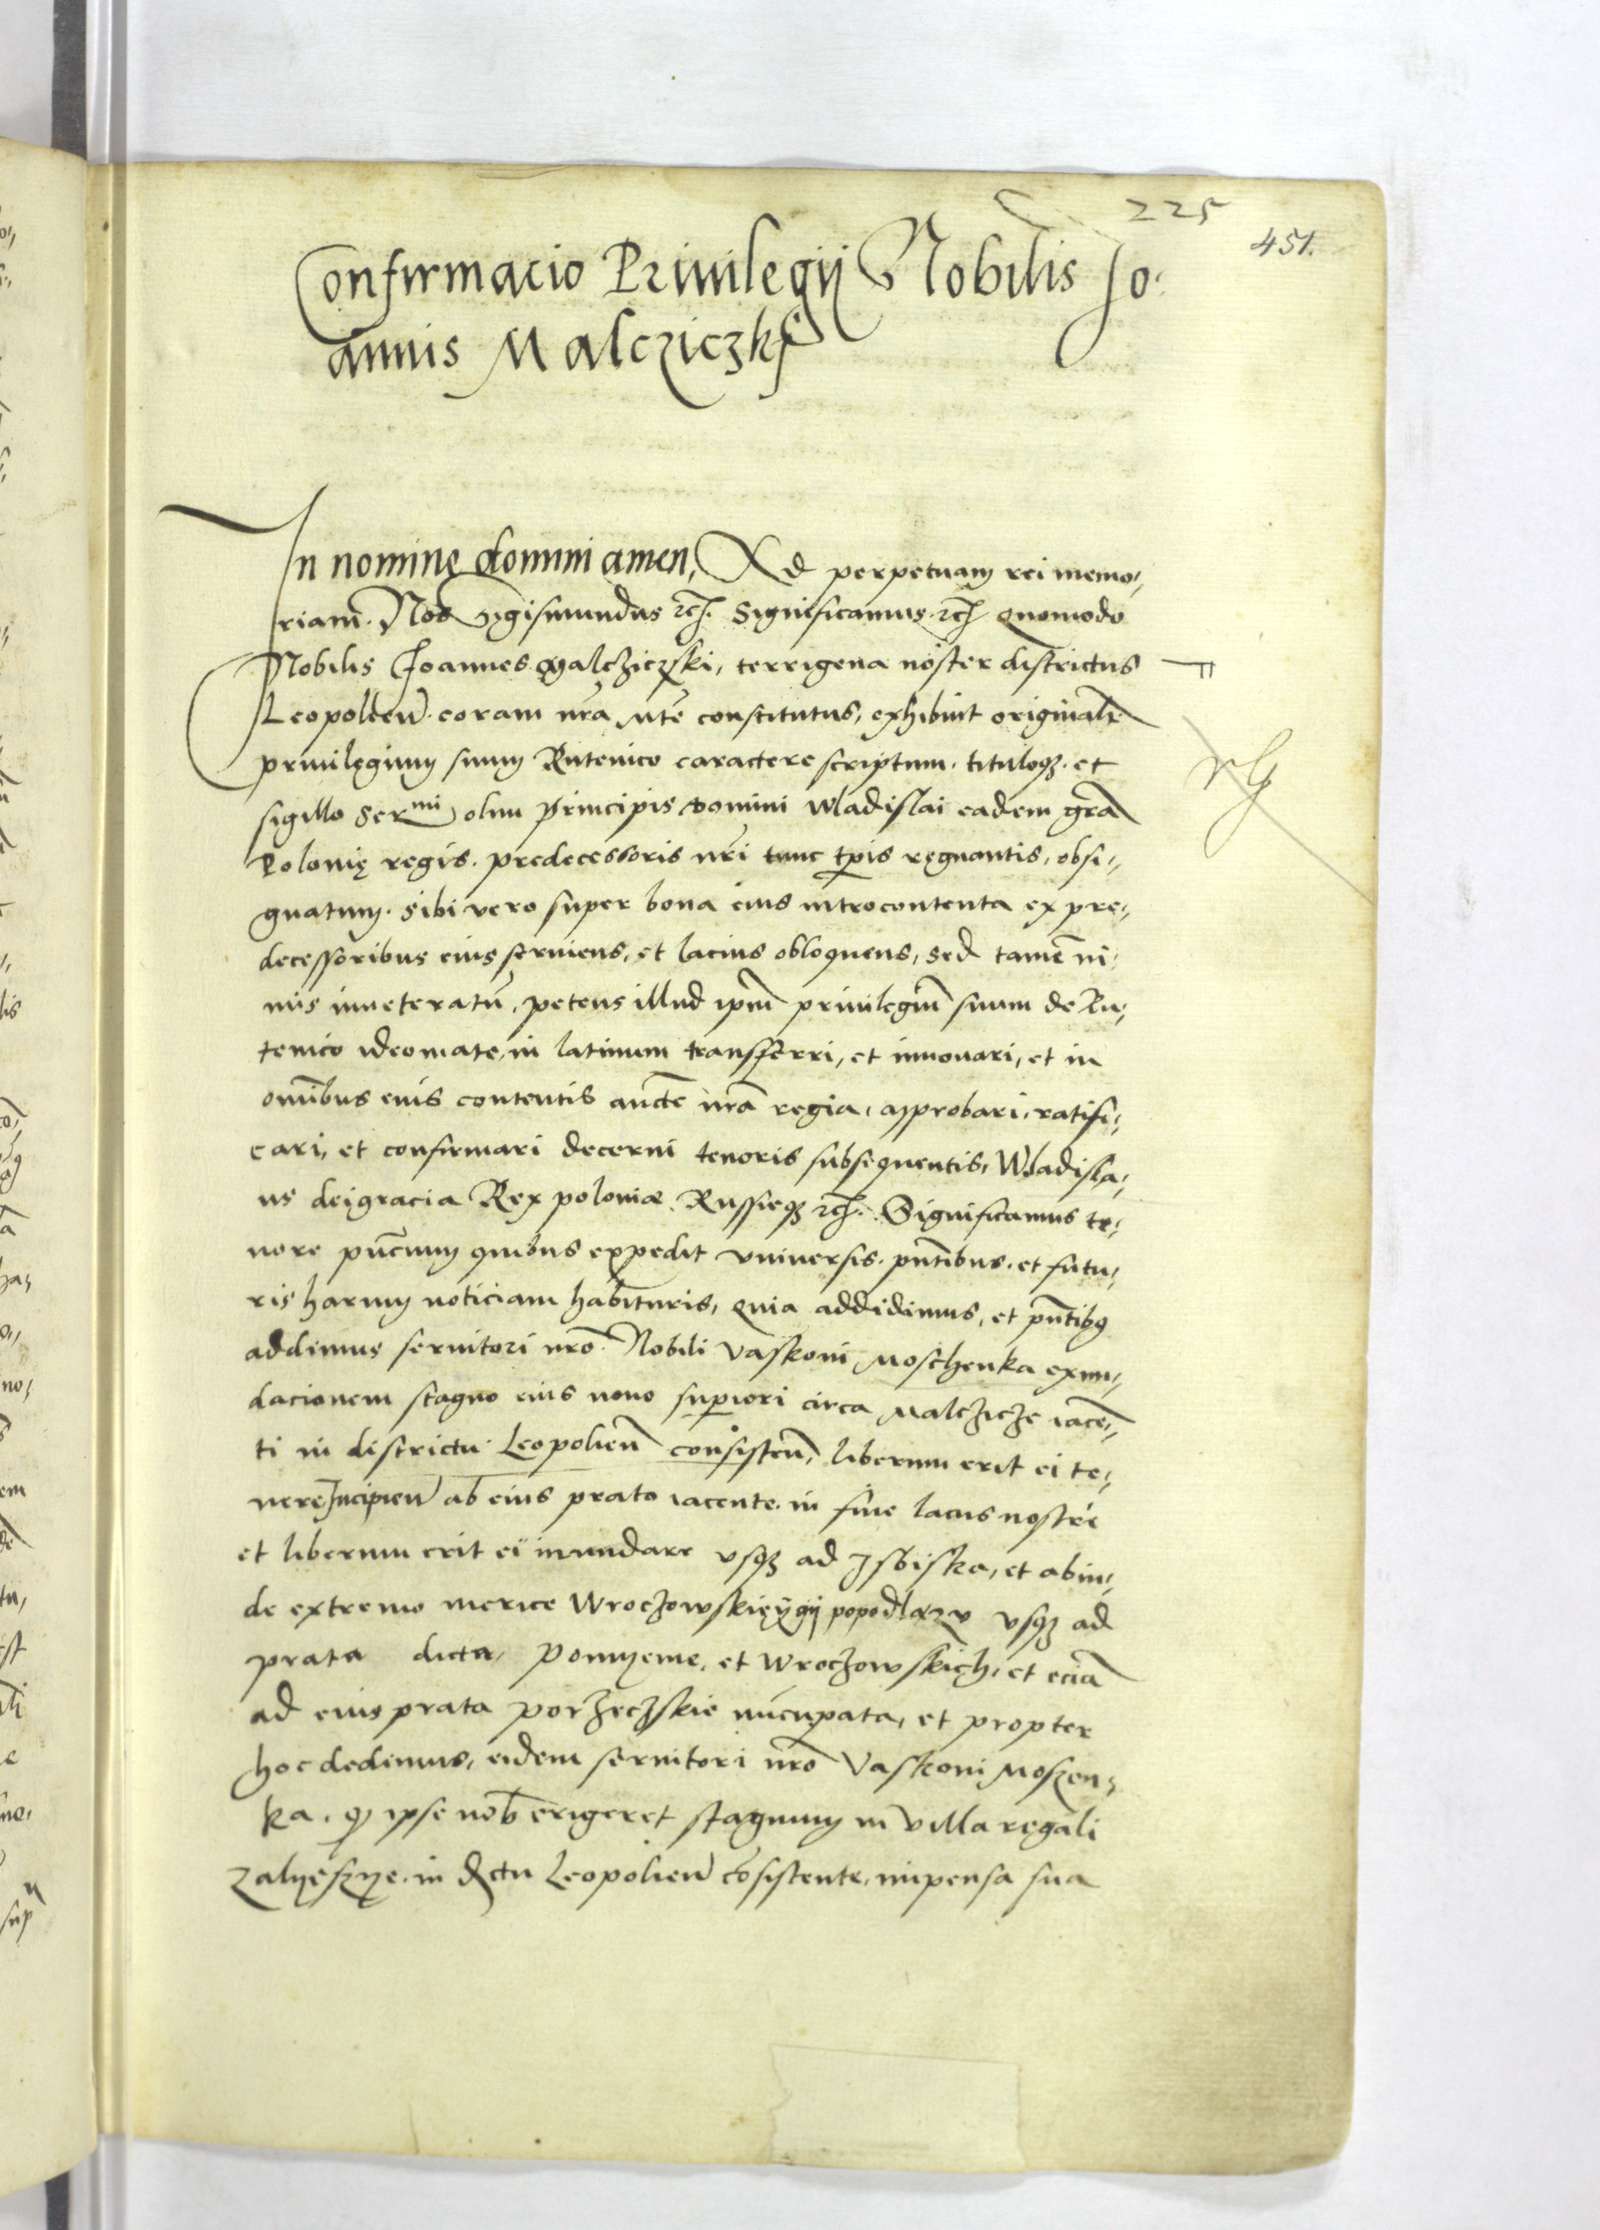 225
451.
Confirmacio Privilegij Nobilis Jo-
annis Malcziczkj
In nominę domini amen, Ad perpetuam rei memo,
riam. Nos Sigismundus rcꝫ. Significamus rcꝫ quomodo
Nobilis Joannes Malcziczski, terrigena noster districtus
Leopolien̄. coram nr̄a M̄te constitutus, exhibuit originale
privilęgium suum Rutenico caractere scriptum. tituloqꝫ. et
sigillo Ser^mi olim principis domini Wladislai eadem gr̄a
Polonię regis. predecessoris nr̄i tunc tp̄is ręgnantis, obsi,
gnatum. sibi vero super bona eius introcontenta ex pre,
decessoribus eius serviens, et lacius obloquens, sed tamē ni,
mis inveteratū, petens illud ip̄m privilegiū suum de Ru,
tenico ideomate, in latinum transferri, et innovari, et in
omībus eius contentis aucte nr̄a regia, approbari, ratifi,
cari, et confirmari decerni tenoris subsequentis, Wladisla,
us dei gracia Rex poloniæ Russieqꝫ rcꝫ. Significamus te,
nore pn̄cium quibus expedit vniversis. pn̄tibus. et futu,
ris harum noticiam habituris, quia addidimus, et pn̄tibꝯ
addimus servitori nr̄o Nobili Vaskoni Moschenka exun,
dacionem stagno eius novo superiori circa Malczicze iacē,
ti in districtu Leopolien̄ consisten̄, liberum erit ei te,
nere Incipien̄ ab eius prato iacente in fine lacus nostri
et liberum erit ei inundare vsqꝫ ad Isbiska, et abin,
de extremo merice Wroczowskięÿgij popodlazv vsqꝫ ad
prata dicta, Ponyeme, et Wroczowskich, et eciā
ad eius prata Porzeczskie nūcupata, et propter
hoc dedimus, eidem servitori nr̄o Vaskoni Moszen,
ka. qꝫ ipse nob̄ erigeret stagnum in villa ręgali
Zalyeszye. in dctu Leopolien̄ cōsistente, impensa sua